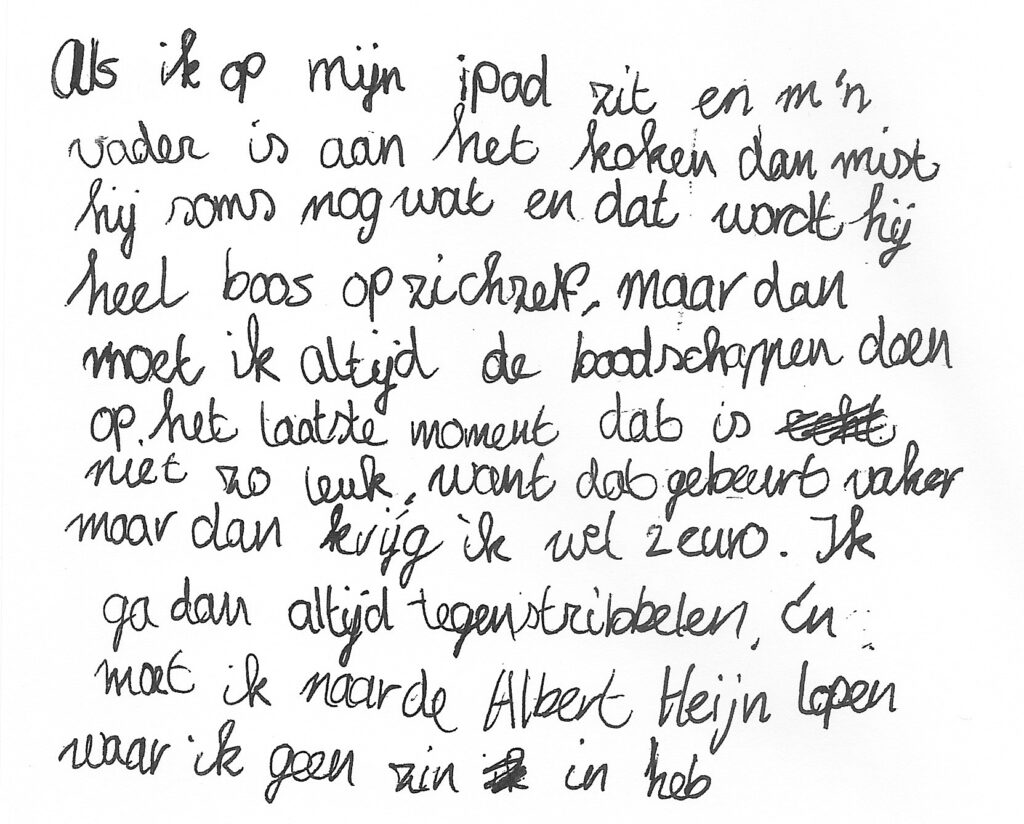 Als ik op mijn ipad zit en m'n
vader is aan het koken dan mist
hij soms nog wat en dat wordt hij
heel boos op zichzelf, maar dan
moet ik altijd de boodschappen doen
op het laatste moment dat is
niet zo leuk, want dat gebeurt vaker
maar dan krijg ik wel 2 euro. Ik
ga dan altijd tegenstribbelen, én
moet ik naar de Albert Heijn lopen
waar ik geen zin in heb